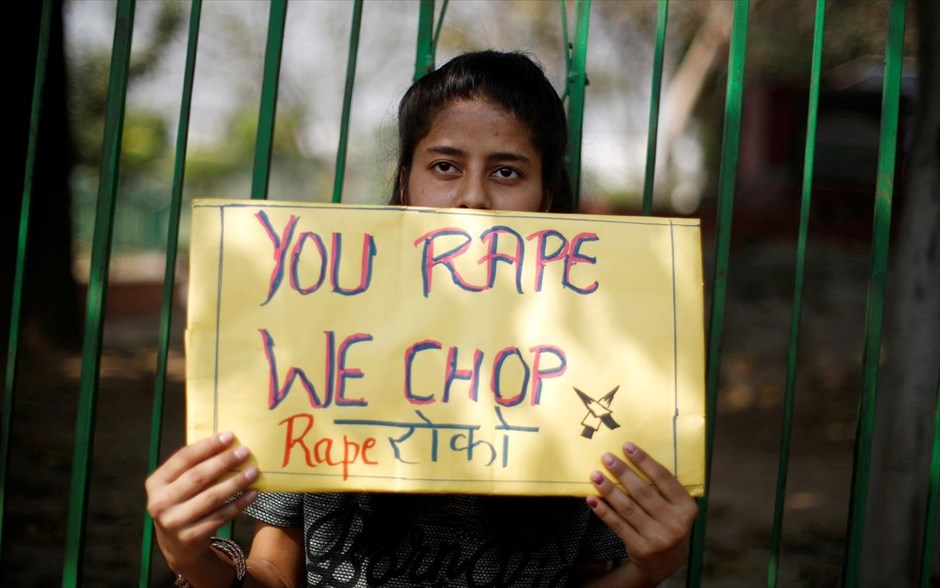 YOU RAPE
WE CHOP
Rape रोको
Born